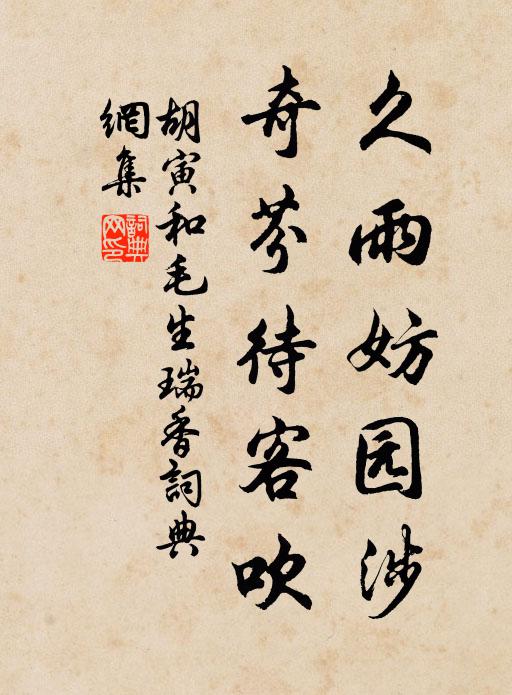 久雨妨园涉
奇芬待客吹
胡寅和毛生瑞香詞典
網集
詞典
网印